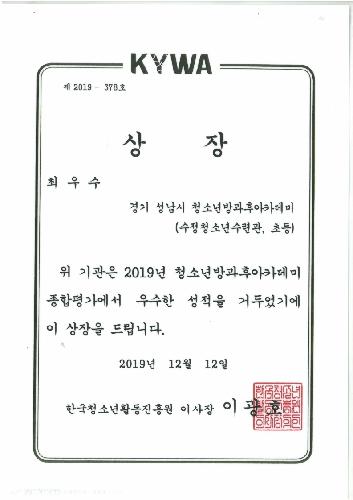 KYWA
제 2019 - 378호
상 장
최 우 수
경기 성남시 청소년방과후아카데미
(수정청소년수련관, 초등)
위 기관은 2019년 청소년방과후아카데미
종합평가에서 우수한 성적을 거두었기에
이 상장을 드립니다.
2019년 12월 12일
한국청소년활동진흥원 이사장 이 광 호